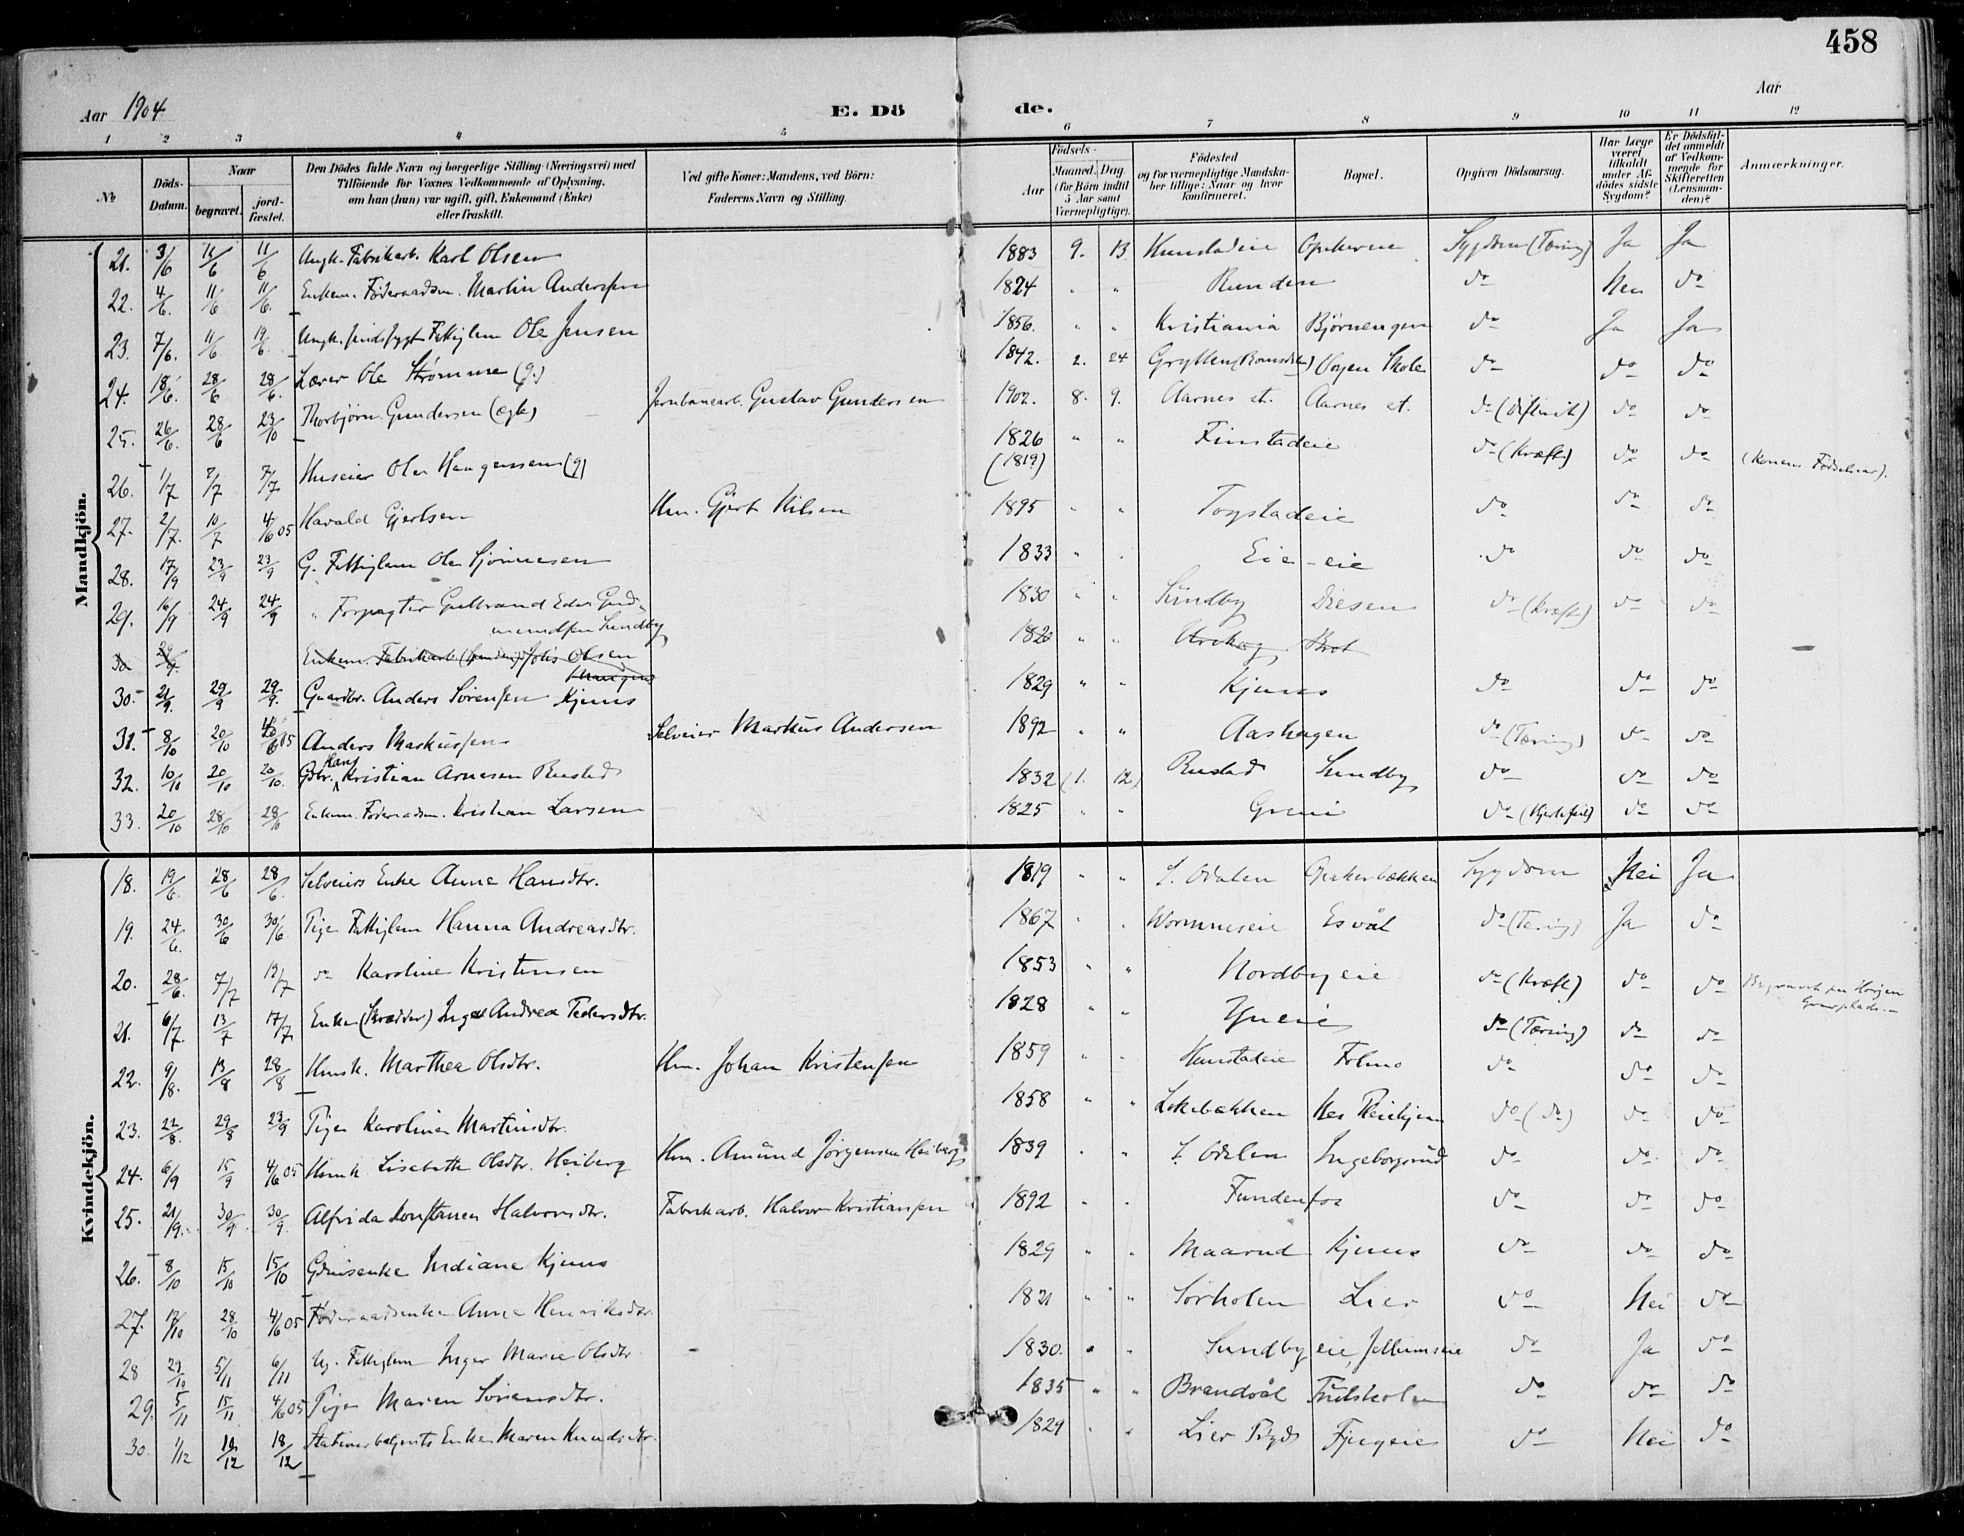 458
Aar 1904 E. Dö de. Aar
1 2 3 4 5 6 7 8 9 10 11 12
№ Döds-Datum. Naar begravet. jord-fæstet. Den Dödes fulde Navn og borgerlige Stilling (Næringsvei) med Tilföiende for Voxnes Vedkommende af Oplysning, om han (hun) var ugift, gift, Enkemand (Enke) eller fraskilt. Ved gifte Koner: Mandens, ved Börn: Faderens Navn og Stilling. Födsels- Aar Maaned. Dag. (for Börn indtil 5 Aar samt Værnepligtige). Födested og for værnepligtige Mandskaber tillige: Naar og hvor konfirmeret. Bopæl. Opgiven Dödsaarsag. Har Læge været tilkaldt under Afdödes sidste Sygdom? Er Dödsfaldet anmeldt af Vedkommende for Skifteretten (Lensmanden)? Anmærkninger.
Mandkjön.
21. 3/6 11/6 11/6 Ungk. Fabrikarb. Karl Olsen 1883 9. 13 Hunstadeie Sygdom (Tæring) Ja Ja
22. 4/6. 11/6 11/6. Enkem. Föderaadsm. Martin Andersen 1824 " " Runden do Nei do
23. 7/6. 11/6 19/6. Ungk. sindssygt Fattiglem Ole Jensen 1856. " " Kristiania Björnengen do Ja Ja
24. 18/6. 28/6 28/6. Lærer Ole Strömme (g.) 1842. 2. 24 Grytten (Romsdal) Vogen Skole do do do
25. 26/6. 28/6 23/10 Thorbjörn Gundersen (egte) Jernbanearb. Gustav Gundersen 1902. 8. 9. Aarnes st. Aarnes st. do (Difterit) do do
26. 1/7 7/7 7/7 Huseier Ole Haagensen (g) 1826 (1819) " " Finstadeie do (Kræft) do do (Konens Födselsaar).
27. 2/7. 10/7 4/6 05 Harald Gjertsen Hm. Gjert Nilsen 1895 " " Togstadeie do do do
28. 17/9 23/9 23/9 G. Fattiglem Ole 1833 " " Eie-eie do do do
29. 16/9 24/9 24/9 " Forpagter Gulbrand Edv. Gud-mundsen Sundby 1830 " " Sundby Disen do (Kræft) do do
30 29/9. Enkem. Fabrikarb. Johs Olsen 1820 " " Urskog
30. 21/9. 29/9 29/9. Gaardbr. Anders Sörensen Kjuus 1829 " " Kjuus do do do
31. 8/10 20/10 4/6 05 Anders Markussen Selveier Markus Andersen 1892 " " Aashagen do (Tæring) do do
32. 10/10 20/10 20/10. Gbr. Hans Kristian Arnesen Rustad 1832 (1. 12) Rustad Sundby do do do
33. 20/10 28/10 28/10 Enkem. Föderaadsm. Kristian Larsen 1825 " " Greni do (Hjertefeil) do do
Kvindekjön.
18. 19/6 28/6 28/6. Selveiers Enke Anne Hansdtr. 1819 " " S. Odalen Sygdom Nei Ja
19. 24/6. 30/6 30/6 Pige Fattiglem Hanna Andreasdtr. 1867 " " Wormneseie Esvål do (Tæring) Ja do
20. 28/6. 7/7 19/7 do Karoline Kristensen 1853 " " Nordbyeie do (Kræft) do do
21. 6/7. 13/7 17/7 Enke (Skrædder) Inger Andrea Pedersdtr. 1828 " " do (Tæring) do do
22. 9/8. 13/8 28/8 Hmsk. Marthea Olsdtr. Hm. Johan Kristensen 1859 " " Hunstadeie Folmo do do do
23. 22/8. 29/8 23/9 Pige Karoline Martinsdtr. 1858 " " Lökebækken do (do) do do
24. 6/9 15/9 4/6 05 Hmsk Lisabeth Olsdtr. Heiberg Hm. Amund Jörgensen Heiberg 1839 " " S. Odalen Ingeborgrud do do do
25. 21/9. 30/9. 30/9. Alfrida Konstance Halvorsdtr. Fabrikarb. Halvor Kristiansen 1892 " " Fundenfos do do do
26. 8/10 15/10 15/10 Indiane Kjuus 1829 " " Maarud Kjuus do do do
27. 17/10 28/10 4/6 05 Föderaadsenke Anne Henriksdtr. 1821 " " Sörholen Lier do Nei do
28 29/10 5/11 6/11 Ug. Fattiglem Inger Marie Olsdtr 1830. " " Sundbyeie, do Ja do
29. 5/11 15/11 4/6 05 Pige Maren Sörensdtr. 1835 " " Brandvål do do do
30. 1/12 10/12 18/12 Stationsbetjents Enke Maren Knudsdtr. 1829 " " Lier do Nei do